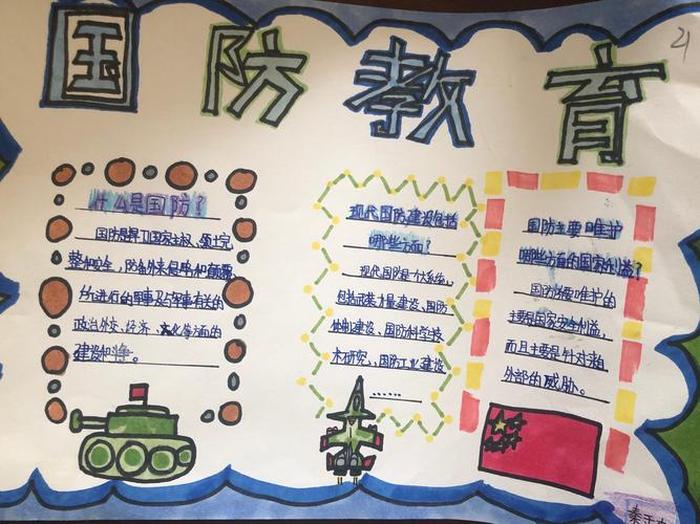 国防教育
21
什么是国防？
国防是捍卫国家主权、领土完
整和安全，防备外来侵略和颠覆
所进行的军事及与军事有关的
政治外交、经济、文化等方面的
建设和斗争。
现代国防建设包括
哪些方面？
现代国防是个大系统，
包括武装力量建设、国防
体制建设、国防科学技
术研究、国防工业建设
……
国防主要唯护
哪些方面的国家利益？
国防主要唯护的
主要是国家安全利益，
而且主要是针对来自
外部的威胁。